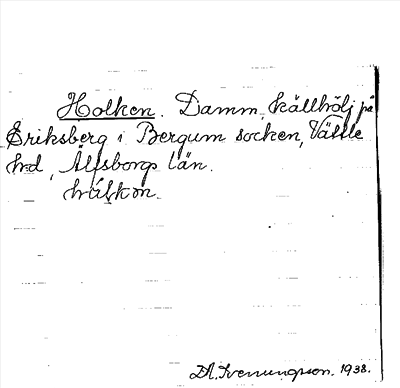 Holken. Damm, källhölj på
Eriksberg i Bergum socken, Vättle
hd, Älfsborgs län.
hålkon.
1938.